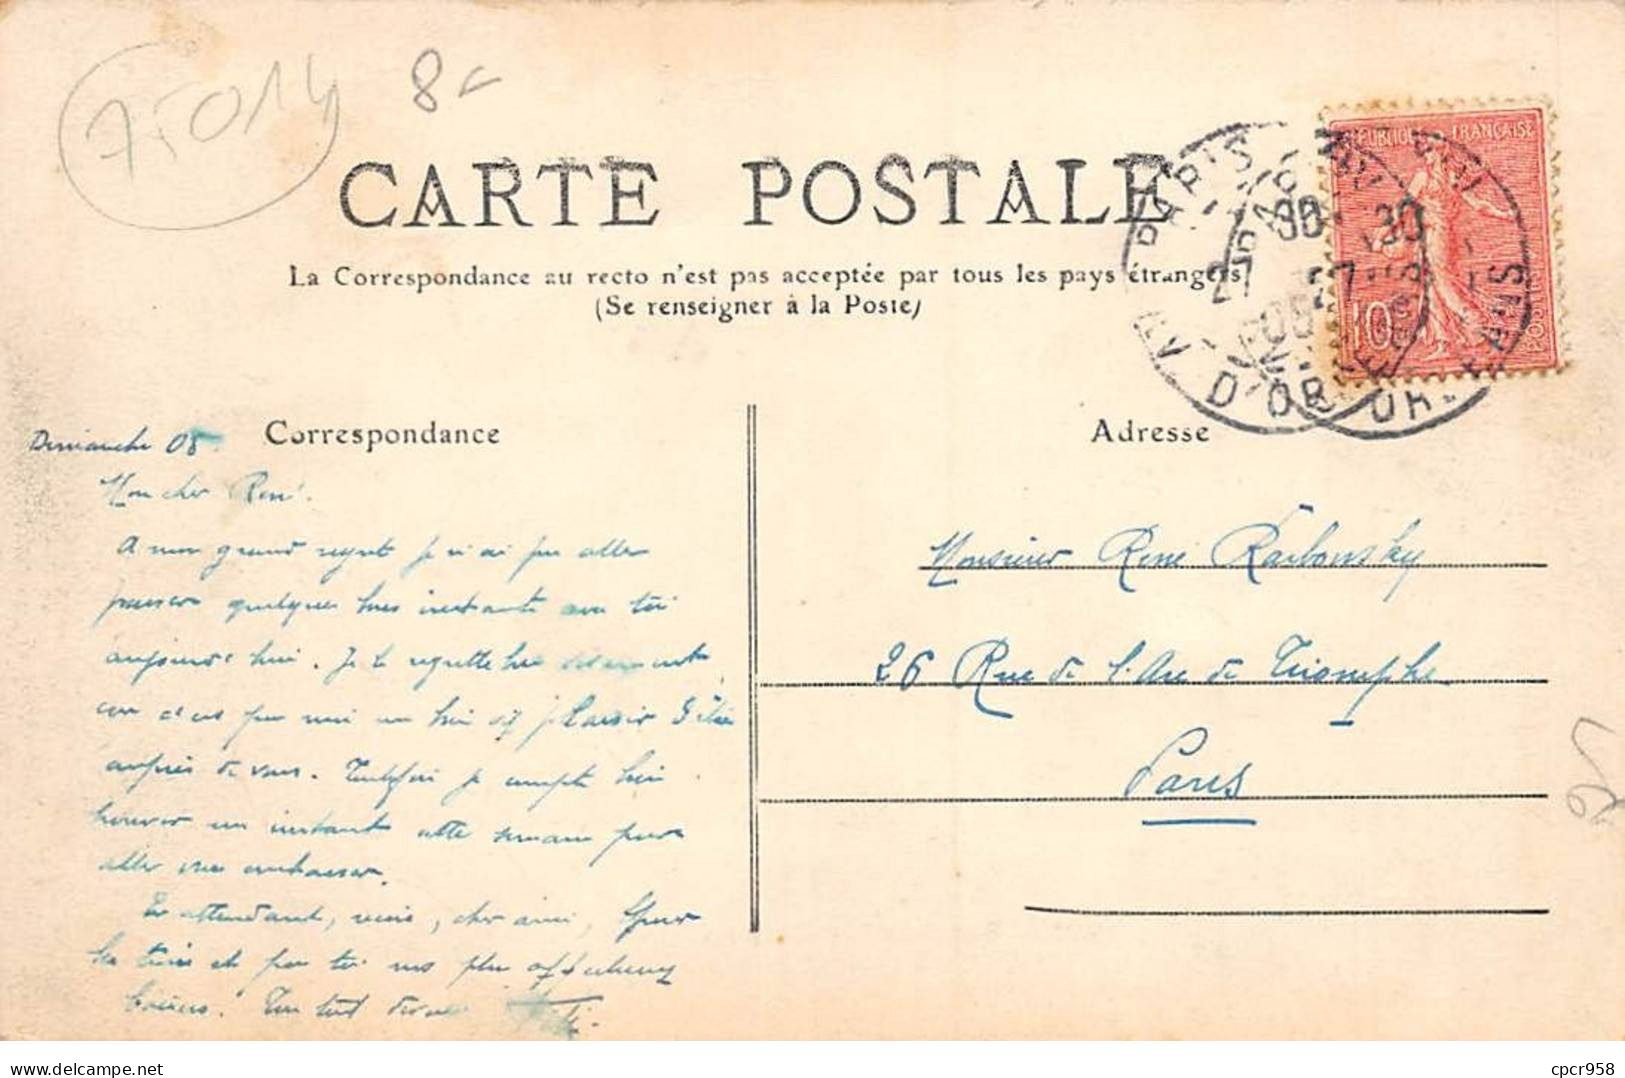 75014
8
CARTE POSTALE
La Correspondance au recto n'est pas acceptée par tous les pays étrangers
(Se renseigner à la Poste)
REPUBLIQUE FRANÇAISE
10
PARIS
AV D'ORLEANS
Correspondance
Adresse
Dimanche 05
Mon cher René.
A mon grand regret je n'ai pu aller
passer quelques instants avec toi
aujourd'hui. Je le regrette
plaisir d'être
auprès de vous. Toutefois je compte bien
trouver un instant cette semaine pour
aller vous embrasser.
En attendant, reçois, cher ami, pour
les tiens et pour toi mes plus affectueux
baisers. Ton tout dévoué
Monsieur René Rarbonsky
26 Rue de l'Arc de Triomphe
Paris
www.delcampe.net
cpcr958